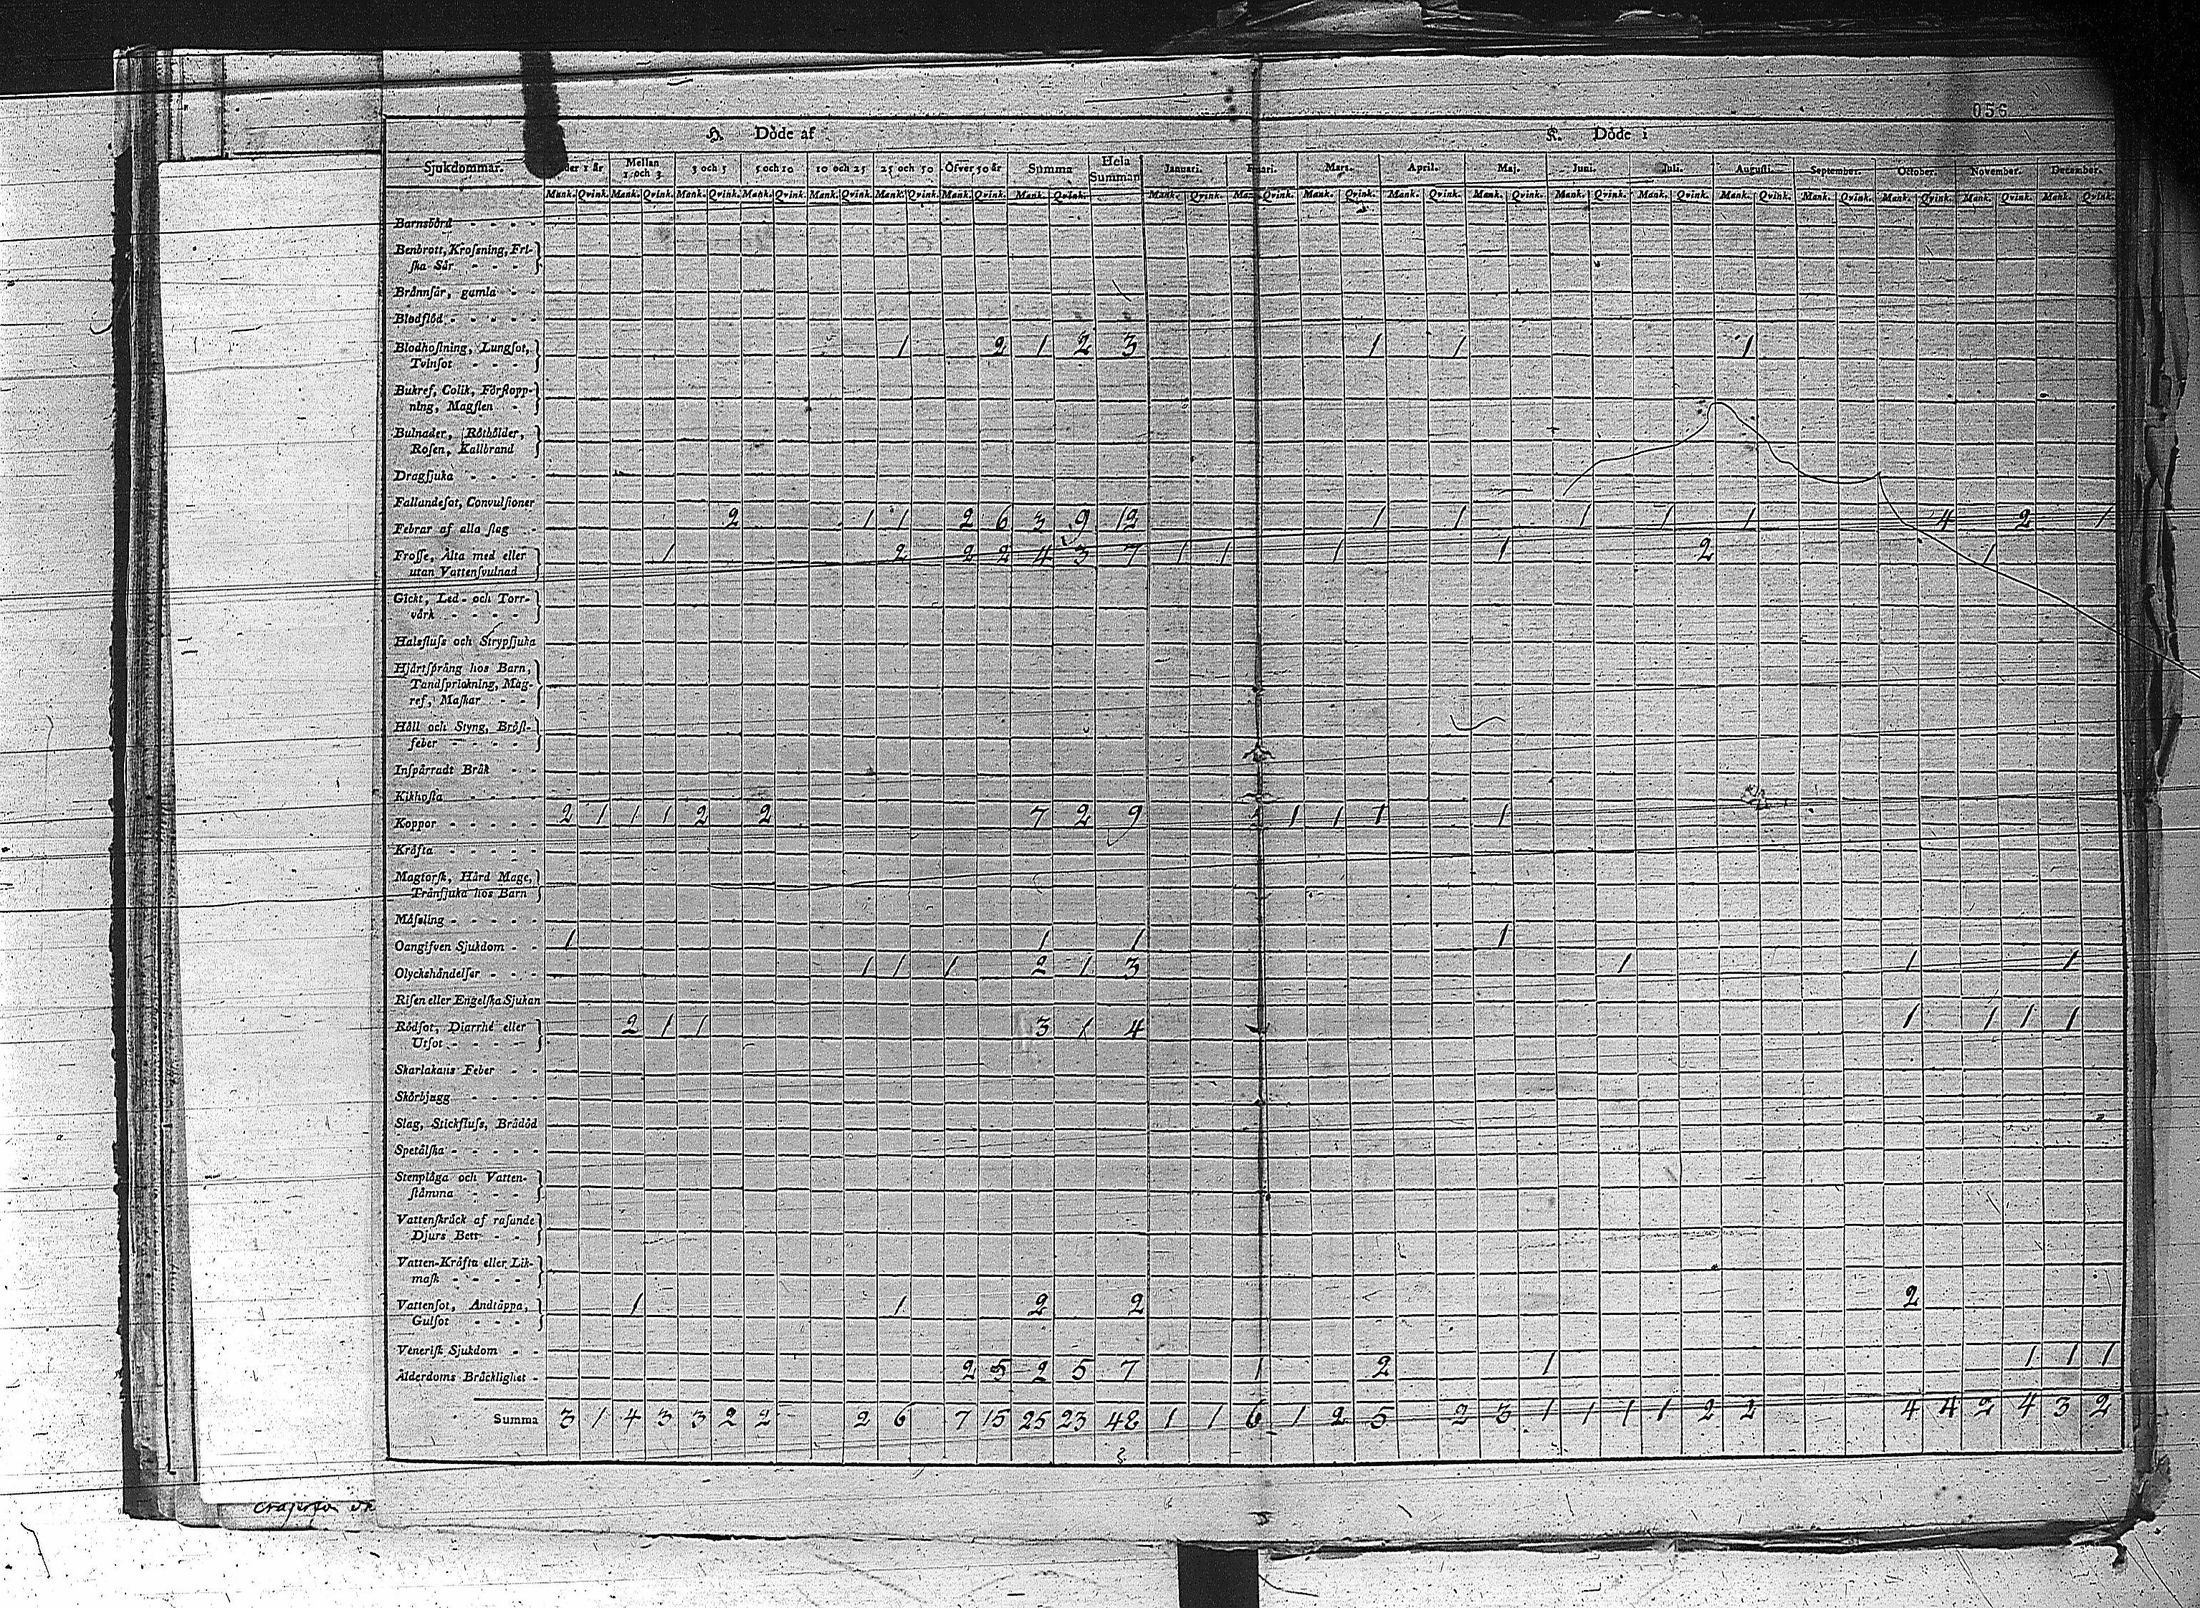 056
H. Döde af
K. Döde i
Sjukdommar. der 1 år Mellan 1 och 3 3 och 5 5 och 10 10 och 25 25 och 50 Öfver 50 år Summa Hela Summan Januari. Mars. April. Maj. Juni. Juli. Augusti. September. October. November. December.
Mank. Qvink. Mank. Qvink. Mank. Qvink. Mank. Qvink. Mank. Qvink. Mank. Qvink. Mank. Qvink. Mank. Qvink. Mank. Qvink. Mank. Qvink. Mank. Qvink. Mank. Qvink. Mank. Qvink. Mank. Qvink. Mank. Qvink. Mank. Qvink. Mank. Qvink. Mank. Qvink. Mank. Qvink. Mank. Qvink.
Barnsbörd
Benbrott, Krossning, Fri-
ska Sår
Brännsår, gamla
Blodflöd
Blodhostning, Lungsot, 1 2 1 2 3 1 1 1
Tvinsot
Bukref, Colik, Förstopp-
ning, Magsten
Bulnader, Rötbölder,
Rosen, Kallbrand
Dragsjuka
Fallandesot, Convulsioner
Febrar af alla slag 2 1 1 2 6 3 9 12 1 1 1 1 1 4 2 1
Frosse, Älta med eller 1 2 2 2 4 3 7 1 1 1 1 2 1
utan Vattensvulnad
Gickt, Led- och Torr-
värk
Halsfluss och Strypsjuka
Hjärtsprång hos Barn,
Tandsprickning, Mag-
ref, Maskar
Håll och Styng, Bröst-
feber
Inspärradt Bråk
Kikhosta
Koppor 2 1 1 1 2 2 7 2 9 1 1 1 1
Kräfta
Magtorsk, Hård Mage,
Trånsjuka hos Barn
Mässling
Oangifven Sjukdom 1 1 1 1
Olyckshändelser 1 1 1 2 1 3 1 1 1
Risen eller Engelska Sjukan
Rödsot, Diarrhé eller 2 1 1 3 1 4 1 1 1 1
Utsot
Skarlakans Feber
Skörbjugg
Slag, Stickfluss, Brådöd
Spetälska
Stenplåga och Vatten-
stämma
Vattenskräck af rasande
Djurs Bett
Vatten-Kräfta eller Lik-
mask
Vattensot, Andtäppa, 1 1 2 2 2
Gulsot
Venerisk Sjukdom
Ålderdoms Bräcklighet 2 5 2 5 7 1 2 1 1 1 1
Summa 3 1 4 3 3 2 2 2 6 7 15 25 23 48 1 1 6 1 2 5 2 3 1 1 1 1 2 2 4 4 2 4 3 2